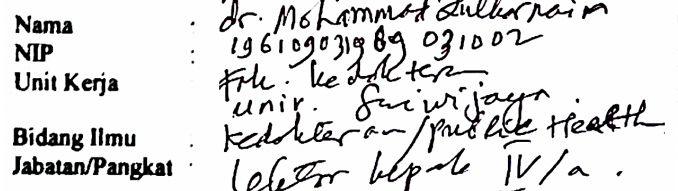 Nama : dr. Mohammad Zulkarnain
NIP : 19610903198903 1002
Unit Kerja : Fak. Kedokteran
Univ. Sriwijaya
Bidang Ilmu : Kedokteran/Public Health
Jabatan/Pangkat : Lektor kepala IV/a.